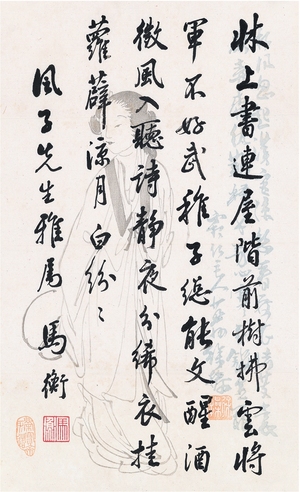 牀上書連屋階前樹拂雲將
軍不好武稚子總能文醒酒
微風入聽詩靜夜分絺衣挂
蘿薜涼月白紛〻
風子先生雅屬 馬衡